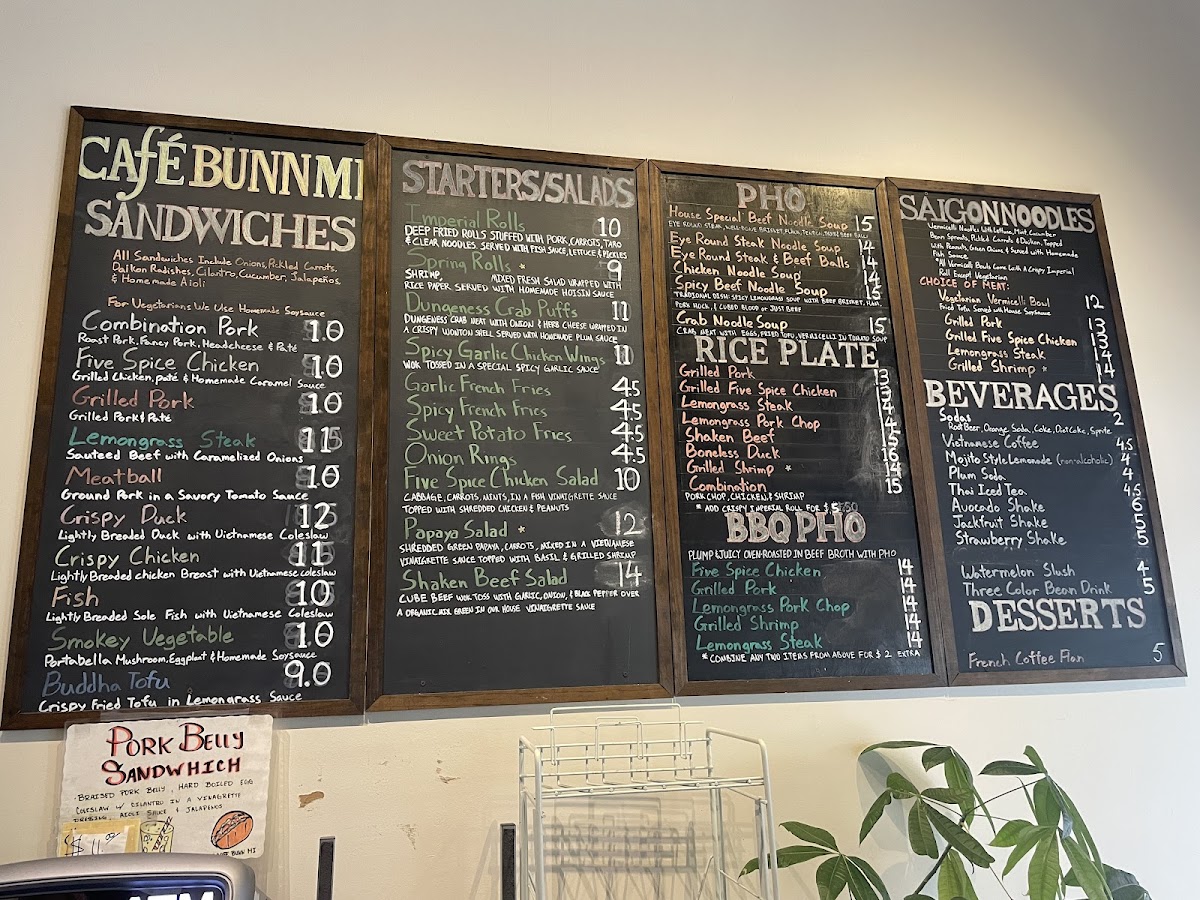 CAFÉ BUNN MI
SANDWICHES
All Sandwiches Include Onions, Pickled Carrots,
Daikon Radishes, Cilantro, Cucumber, Jalapeños,
& Homemade Aioli
For Vegetarians We Use Homemade Soysauce
Combination Pork 10
Roast Pork, Fancy Pork, Headcheese & Paté
Five Spice Chicken 10
Grilled Chicken, paté & Homemade Caramel Sauce
Grilled Pork 10
Grilled Pork & Paté
Lemongrass Steak 11
Sauteed Beef with Caramelized Onions
Meatball 10
Ground Pork in a Savory Tomato Sauce
Crispy Duck 12
Lightly Breaded Duck with Vietnamese Coleslaw
Crispy Chicken 11
Lightly Breaded chicken Breast with Vietnamese coleslaw
Fish 10
Lightly Breaded Sole Fish with Vietnamese Coleslaw
Smokey Vegetable 10
Portabella Mushroom, Eggplant & Homemade Soysauce
Buddha Tofu 9.0
Crispy Fried Tofu in Lemongrass Sauce
STARTERS/SALADS
Imperial Rolls 10
DEEP FRIED ROLLS STUFFED WITH PORK, CARROTS, TARO
& CLEAR NOODLES. SERVED WITH FISH SAUCE, LETTUCE & PICKLES
Spring Rolls * 9
SHRIMP MIXED FRESH SALAD WRAPPED WITH
RICE PAPER. SERVED WITH HOMEMADE HOISIN SAUCE
Dungeness Crab Puffs 11
DUNGENESS CRAB MEAT WITH ONION & HERB CHEESE WRAPPED IN
A CRISPY WONTON SHELL SERVED WITH HOMEMADE PLUM SAUCE
Spicy Garlic Chicken Wings 11
WOK TOSSED IN A SPECIAL SPICY GARLIC SAUCE
Garlic French Fries 4.5
Spicy French Fries 4.5
Sweet Potato Fries 4.5
Onion Rings 4.5
Five Spice Chicken Salad 10
CABBAGE, CARROTS, MINTS, IN A FISH VINAIGRETTE SAUCE
TOPPED WITH SHREDDED CHICKEN & PEANUTS
Papaya Salad * 12
SHREDDED GREEN PAPAYA, CARROTS, MIXED IN A VIETNAMESE
VINAIGRETTE SAUCE TOPPED WITH BASIL & GRILLED SHRIMP
Shaken Beef Salad 14
CUBE BEEF WOK TOSS WITH GARLIC, ONION, & BLACK PEPPER OVER
A ORGANIC MIX GREEN IN OUR HOUSE VINAIGRETTE SAUCE
PHO
House Special Beef Noodle Soup 15
EYE ROUND STEAK, WELL-DONE BRISKET, FLANK, TENDON, TRIPE, BEEF BALLS
Eye Round Steak Noodle Soup 14
Eye Round Steak & Beef Balls 14
Chicken Noodle Soup 14
Spicy Beef Noodle Soup 15
TRADITIONAL DISH: SPICY LEMONGRASS SOUP WITH BEEF BRISKET, HAM,
PORK HOCK, & CUBED BLOOD OR JUST BEEF
Crab Noodle Soup 15
CRAB MEAT WITH EGGS, FRIED TOFU, VERMICELLI IN TOMATO SOUP
RICE PLATE
Grilled Pork 13
Grilled Five Spice Chicken 13
Lemongrass Steak 14
Lemongrass Pork Chop 14
Shaken Beef 15
Boneless Duck 16
Grilled Shrimp * 14
Combination 15
PORK CHOP, CHICKEN & SHRIMP
* ADD CRISPY IMPERIAL ROLL FOR $
BBQ PHO
PLUMP & JUICY OVEN-ROASTED IN BEEF BROTH WITH PHO
Five Spice Chicken 14
Grilled Pork 14
Lemongrass Pork Chop 14
Grilled Shrimp 14
Lemongrass Steak 14
* COMBINE ANY TWO ITEMS FROM ABOVE FOR $ 2 EXTRA
SAIGON NOODLES
Vermicelli Noodles With Lettuce, Mint, Cucumber
Bean Sprouts, Pickled Carrots & Daikon. Topped
with Peanuts, Green Onions, & Served with Homemade
Fish Sauce
*All Vermicelli Bowls Come With A Crispy Imperial
Roll Except Vegetarian
CHOICE OF MEAT:
Vegetarian Vermicelli Bowl 12
Fried Tofu Served with House Soysauce
Grilled Pork 13
Grilled Five Spice Chicken 13
Lemongrass Steak 14
Grilled Shrimp * 14
BEVERAGES
Sodas 2
Root Beer, Orange Soda, Coke, Diet Coke, Sprite
Vietnamese Coffee 4.5
Mojito Style Lemonade (non-alcoholic) 4
Plum Soda 4
Thai Iced Tea 4.5
Avocado Shake 6
Jackfruit Shake 5
Strawberry Shake 5
Watermelon Slush 4
Three Color Bean Drink 5
DESSERTS
French Coffee Flan 5
PORK BELLY
SANDWHICH
BRAISED PORK BELLY, HARD BOILED EGG
COLESLAW W/ CILANTRO IN A VINAGRETTE
DRESSING, AIOLI SAUCE & JALAPEÑOS
CAFE BUNN MI
ATM